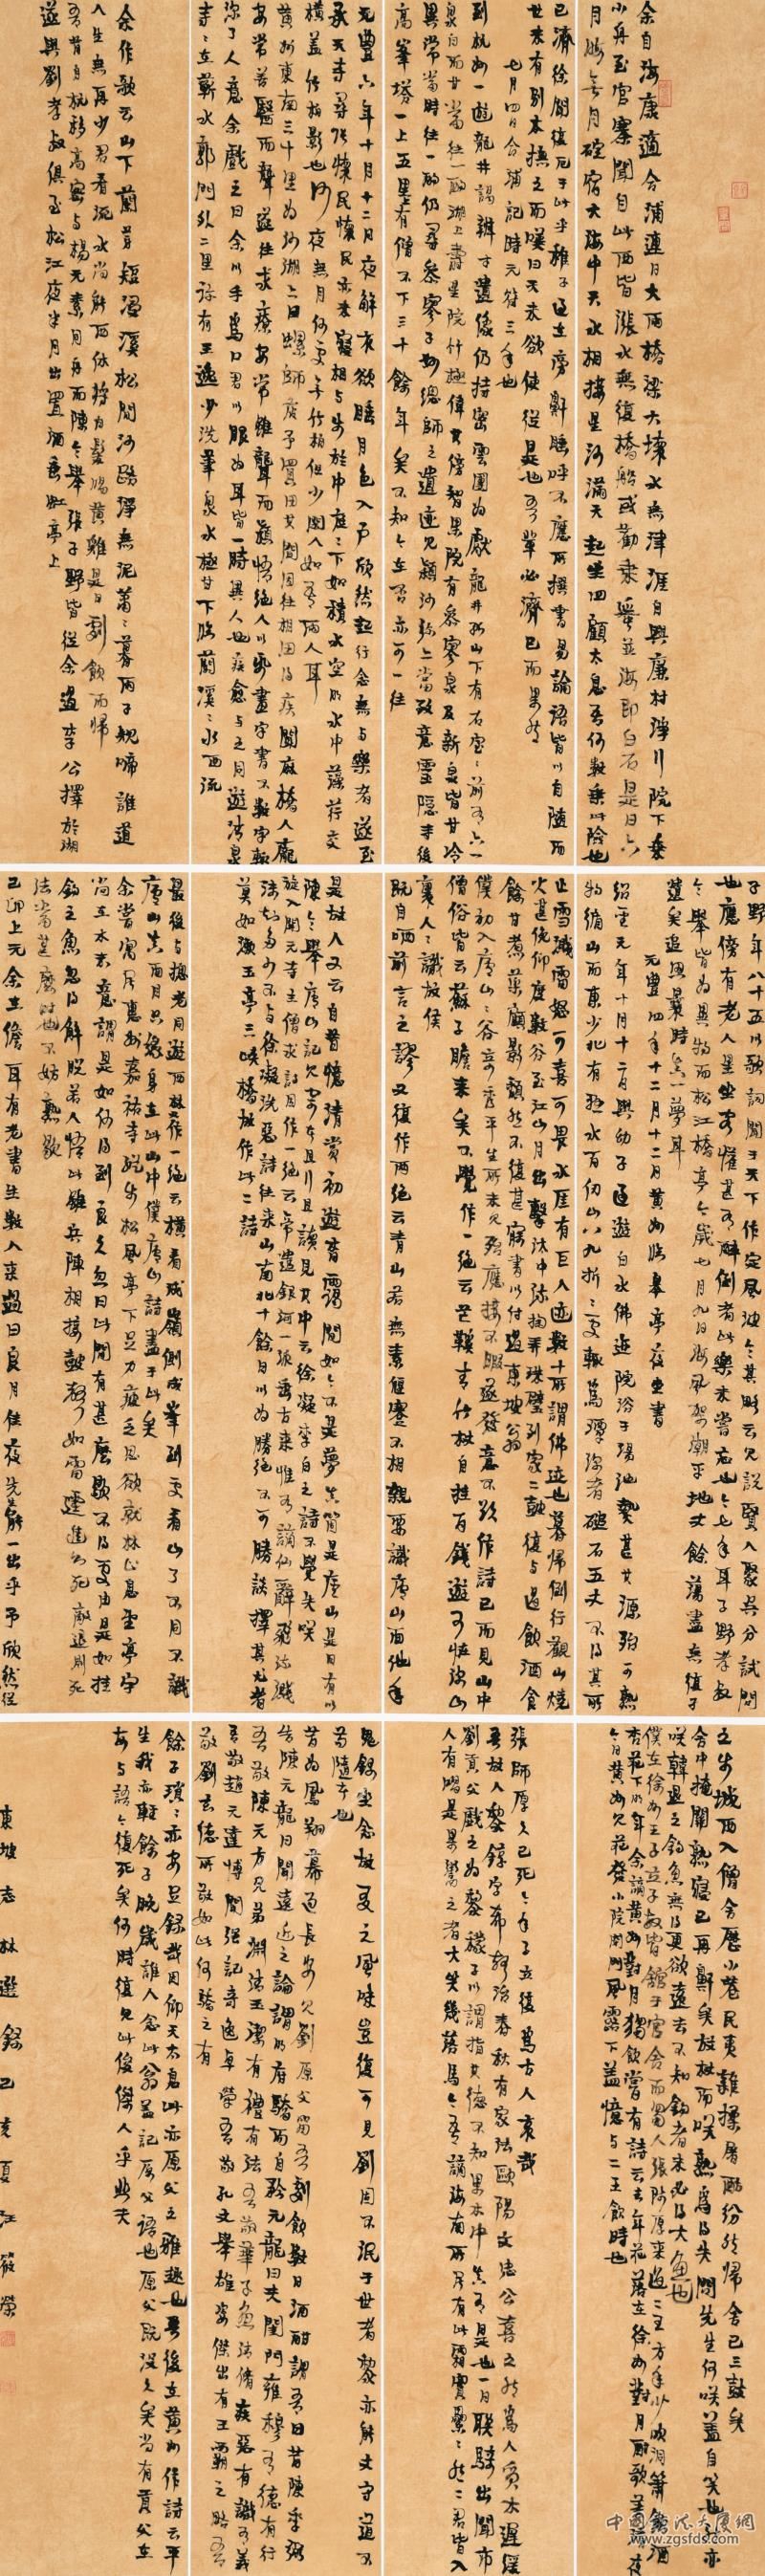 余自海康適合浦連日大雨橋梁大壞水無津涯自興廉村淨行院下乘
小舟至官寨聞自此西皆漲水無復橋船或勸乘蜑並海即白石是日六
月晦無月碇宿大海中天水相接星河滿天起坐四顧太息吾何數乘此險也
已濟徐聞復厄于此乎稚子過在旁鼾睡呼不應所撰書易論語皆以自隨而
世未有別本撫之而嘆曰天未欲使從是也吾輩必濟已而果然
七月四日合浦記時元符三年也
到杭州一遊龍井謁辯才遺像仍持密雲團為獻龍井孤山下有石室室前有六一
泉白而甘當往一酌湖上壽星院竹極偉其傍智果院有參寥泉及新泉皆甘冷
異常當時往一酌仍尋參寥子妙總師之遺迹見穎沙彌亦當致意靈隱寺後
高峯塔一上五里上有僧不下三十餘年矣不知今在否亦可一往
元豐六年十月十二日夜解衣欲睡月色入戶欣然起行念無與樂者遂至
承天寺尋張懷民懷民亦未寢相與步於中庭庭下如積水空明水中藻荇交
橫蓋竹柏影也何夜無月何處無竹柏但少閑人如吾兩人耳
黃州東南三十里為沙湖亦曰螺師店予買田其間因往相田得疾聞麻橋人龐
安常善醫而聾遂往求療安常雖聾而穎悟絕人以紙畫字書不數字輒
深了人意余戲之曰余以手為口君以眼為耳皆一時異人也疾愈與之同遊清泉
寺寺在蘄水郭門外二里許有王逸少洗筆泉水極甘下臨蘭溪溪水西流
余作歌云山下蘭芽短浸溪松間沙路淨無泥蕭蕭暮雨子規啼誰道
人生無再少君看流水尚能西休將白髮唱黃雞是日劇飲而歸
吾昔自杭移高密與楊元素同舟而陳令舉張子野皆從余過李公擇於湖
遂與劉孝叔俱至松江夜半月出置酒垂虹亭上
子野年八十五以歌詞聞于天下作定風波令其略云見說賢人聚吳分試問
也應傍有老人星坐客懽甚有醉倒者此樂未嘗忘也今七年耳子野孝叔
令舉皆為異物而松江橋亭今歲七月九日海風架潮平地丈餘蕩盡無復孑
遺矣追思曩時真一夢耳
元豐四年十二月十二日黃州臨皋亭夜坐書
紹聖元年十月十二日與幼子過遊白水佛迹院浴于湯池熱甚其源殆可熟
物循山而東少北有懸水百仞山八九折折處輒為潭深者磓石五丈不得其所
止雪濺雷怒可喜可畏水厓有巨人迹數十所謂佛迹也暮歸倒行觀山燒
火甚俛仰度數谷至江山月出擊汰中流掬弄珠璧到家二鼓復與過飲酒食
餘甘煮菜顧影頹然不復甚寐書以付過東坡翁
僕初入廬山山谷奇秀平生所未見殆應接不暇遂發意不欲作詩已而見山中
僧俗皆云蘇子瞻來矣不覺作一絕云芒鞵青竹杖自挂百錢遊可怪深山
裏人人識故侯
既自哂前言之謬又復作兩絕云青山若無素偃蹇不相親要識廬山面他年
是故人又云自昔憶清賞初遊杳靄間如今不是夢真箇是廬山是日有以
陳令舉廬山記見寄者且行且讀見其中云徐凝李白之詩不覺失笑
旋入開元寺主僧求詩因作一絕云帝遣銀河一派垂古來惟有謫仙辭飛流濺
沫知多少不與徐凝洗惡詩往來山南北十餘日以為勝絕不可勝談擇其尤者
莫如漱玉亭三峽橋故作此二詩
最後與摠老同遊西林又作一絕云橫看成嶺側成峯到處看山了不同不識
廬山真面目只緣身在此山中僕廬山詩盡于此矣
余嘗寓居惠州嘉祐寺縱步松風亭下足力疲乏思欲就林止息望亭宇
尚在木末意謂是如何得到良久忽曰此間有甚麼歇不得處由是如挂
鈎之魚忽得解脫若人悟此雖兵陣相接鼓聲如雷霆進則死敵退則死
法當甚麼時也不妨熟歇
己卯上元余在儋耳有老書生數人來過曰良月佳夜先生能一出乎予欣然從
之步城西入僧舍歷小巷民夷雜揉屠酤紛然歸舍已三鼓矣
舍中掩關熟寢已再鼾矣放杖而笑孰為得失問先生何笑蓋自笑也然亦
笑韓退之釣魚無得更欲遠去不知釣者未必得大魚也
僕在徐州王子立子敏皆館于官舍而蜀人張師厚來過二王方年少吹洞簫飲酒
杏花下明年余謫黃州對月獨飲嘗有詩云去年花落在徐州對月酣歌美清夜
今日黃州見花發小院閉門風露下蓋憶與二王飲時也
張師厚久已死今年子立復為古人哀哉
吾故人黎錞字希聲治春秋有家法歐陽文忠公喜之然為人質木遲緩
劉貢父戲之為黎檬子以謂指其德不知果木中真有是也一日聯騎出聞市
人有唱是果鬻之者大笑幾落馬今吾謫海南所居有此霜實纍纍然二君皆入
鬼錄坐念故友之風味豈復可見劉固不泯于世者黎亦能文守道不
苟隨者也
昔為鳳翔幕過長安見劉原父留吾劇飲數日酒酣謂吾曰昔陳季弼
告陳元龍曰聞遠近之論謂明府驕而自矜元龍曰夫閨門雍穆有德有行
吾敬陳元方兄弟淵清玉潔有禮有法吾敬華子魚清脩疾惡有識有義
吾敬趙元達博聞强記奇逸卓犖吾敬孔文舉雄姿傑出有王霸之略吾
敬劉玄德所敬如此何驕之有
餘子瑣瑣亦安足錄哉因仰天太息此亦原父之雅趣也吾後在黃州作詩云平
生我亦輕餘子晚歲誰人念此翁蓋記原父語也原父既沒久矣尚有貢父在
每與語今復死矣何時復見此俊傑人乎悲夫
東坡志林選錄己亥夏江筱榮
中國書法大廈網
www.zgsfds.com